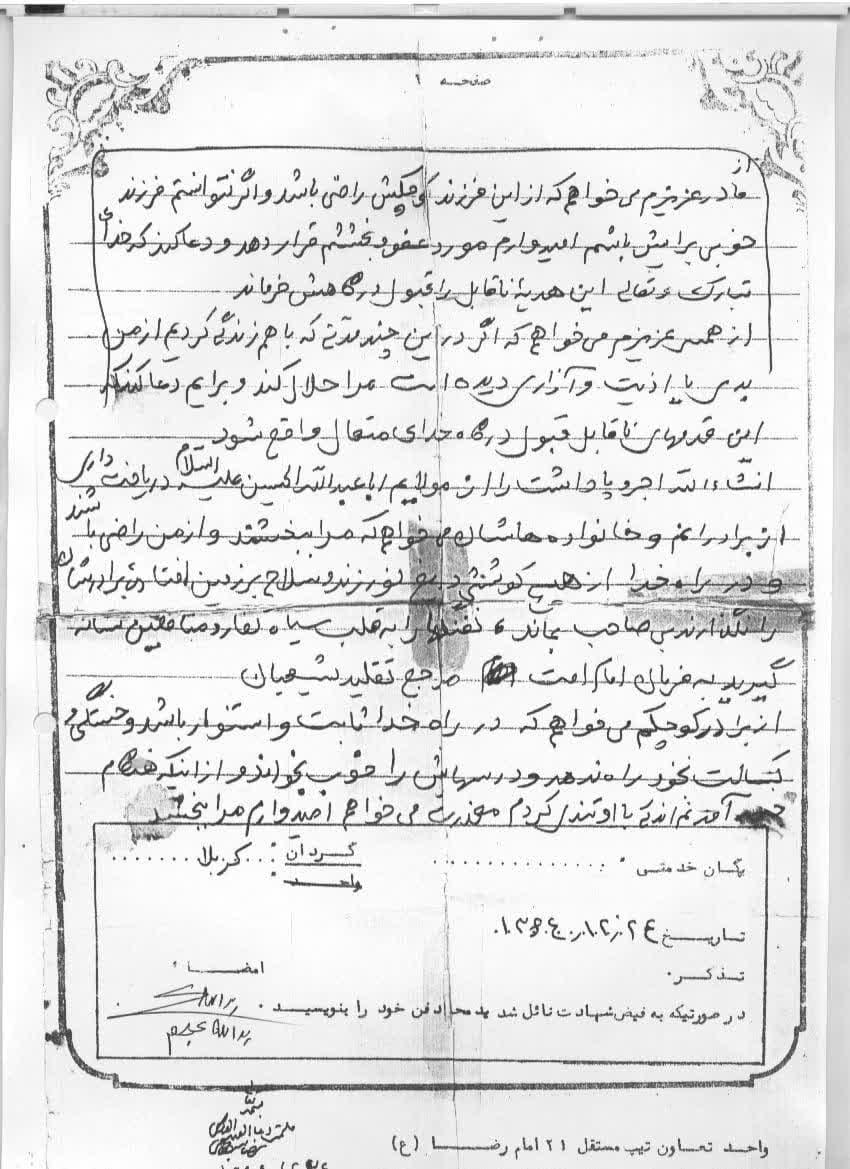 صفحه ۱
از
مادر عزیزم می خواهم که از این فرزند کوچکش راضی باشد و اگر نتوانستم فرزند
خوبی برایش باشم امیدوارم مورد عفو و بخششم قرار دهد و دعا کند که خدای
تبارک و تعالی این هدیهٔ ناقابل را قبول درگاهش فرماند
از همسر عزیزم می خواهم که اگر در این چند مدتی که با هم زندگی کردیم از من
بدی یا اذیت و آزاری دیده است مرا حلال کند و برایم دعا کند که
این قدمهای ناقابل قبول درگاه خدای متعال واقع شود
انشاءالله اجر و پاداشت را از مولایم اباعبدالله الحسین علیه السلام دریافت داری
از برادرانم و خانواده هاشان می خواهم که مرا ببخشند و از من راضی باشند
و در راه خدا از هیچ کوششی دریغ نورزند و سلاح بر زمین افتاده برادرشان
را نگذارند بی صاحب بماند و تفنگها را به قلب سیاه کفار و منافقین نشانه
گیرید به فرمان امام امت مرجع تقلید شیعیان
از برادر کوچکم می خواهم که در راه خدا ثابت و استوار باشد و خستگی و
کسالت بخود راه ندهد و درسهایش را خوب بخواند و از اینکه هنگام
آمدنم اندکی با او تندی کردم معذرت می خواهم امیدوارم مرا ببخشد
یگان خدمتی : گردان : کربلا
واحد :
تاریخ ۱۳۶۴/۰۲/۲۴
تذکر. امضاء :
در صورتیکه به فیض شهادت نائل شد ید محل دفن خود را بنویسید .
یدالله
واحد تعاون تیپ مستقل ۲۱ امام رضا (ع)